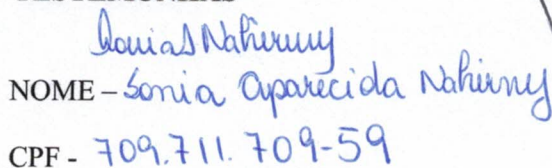 Sonia S Nahirny
NOME – Sonia Aparecida Nahirny
CPF - 709.711.709-59